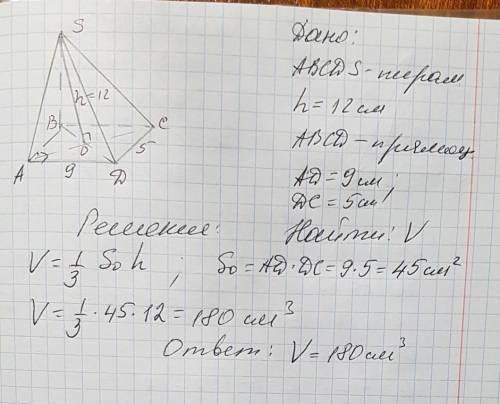 S
h=12
B
C
O
5
A
9
D
Дано:
ABCDS - пирам
h = 12 см
ABCD - прямоуг.
AD = 9 см;
DC = 5 см
Решение:
Найти: V
V = 1/3 Sо h ; Sо = AD · DC = 9 · 5 = 45 см²
V = 1/3 · 45 · 12 = 180 см³
Ответ: V = 180 см³